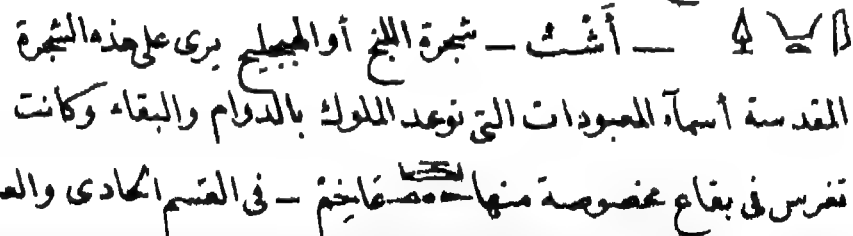 — أَشْت — شجرة اللبخ أو الهجيليج يرى على هذه الشجرة
المقدسة أسمآء المعبودات التى توعد الملوك بالدوام والبقاء وكانت
تغرس فى بقاع مخصوصة منها عَايِخِمْ — فى القسم الحادى